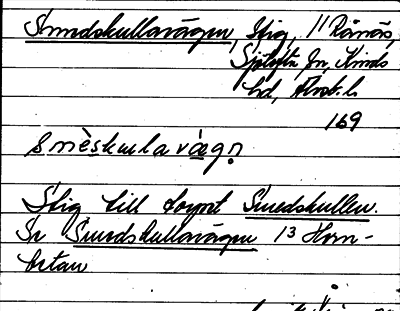 Smedskullavägen, Stig, 11 Rånäs,
Sjötofta Sn, Kinds
hd, Älvsb. l.
169
smèskullavägɔn
Stig till torpet Smedskullen.
Se Smedskullavägen 13 Horn-
betan